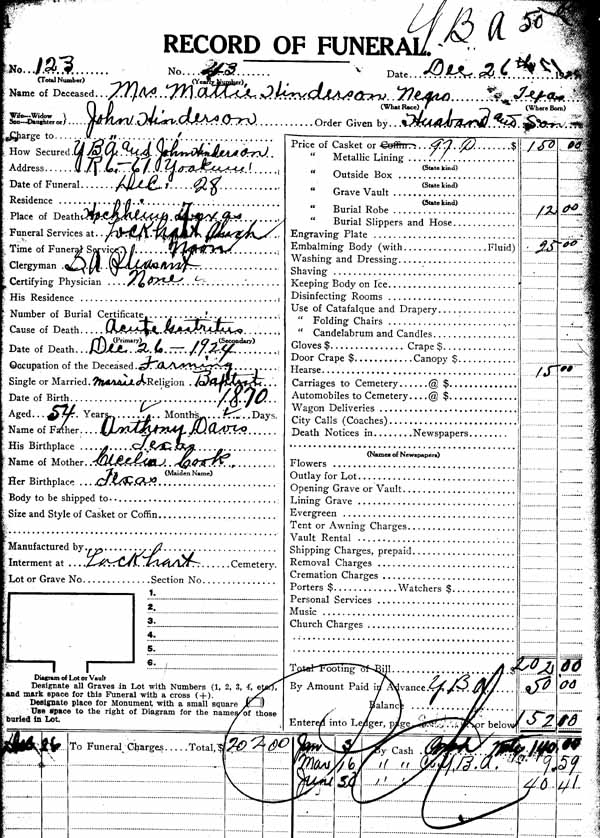 Y B A 50
RECORD OF FUNERAL.
No. 123 No. 43 Date Dec 26th 192
(Total Number) (Yearly Number)
Name of Deceased Mrs Mattie Hinderson Negro Texas
(What Race) (Where Born)
Wife—Widow
Son—Daughter of} John Hinderson Order Given by Husband and Son
Charge to
How Secured Y B A. and John Hinderson
Address R 6-61 Yoakum
Date of Funeral Dec. 28
Residence
Place of Death Hochheim Texas
Funeral Services at Lockhart Church
Time of Funeral Service Noon
Clergyman S. A. Pleasant
Certifying Physician None
His Residence
Number of Burial Certificate
Cause of Death Acute Gastritus
(Primary) (Secondary)
Date of Death Dec 26 — 1924
Occupation of the Deceased Farming
Single or Married Married Religion Baptist
Date of Birth 1870
Aged 54 Years Months Days.
Name of Father Anthony Davis
His Birthplace Texas
Name of Mother Cecelia Cook.
(Maiden Name)
Her Birthplace Texas
Body to be shipped to
Size and Style of Casket or Coffin
Manufactured by
Interment at Lockhart Cemetery.
Lot or Grave No. Section No.
1.
2.
3.
4.
5.
6.
Diagram of Lot or Vault
Designate all Graves in Lot with Numbers (1, 2, 3, 4, etc.),
and mark space for this Funeral with a cross (+).
Designate place for Monument with a small square
Use space to the right of Diagram for the names of those
buried in Lot.
Price of Casket or Coffin $ 150 00
" Metallic Lining
(State kind)
" Outside Box
(State kind)
" Grave Vault
(State kind)
" Burial Robe 12 00
" Burial Slippers and Hose
Engraving Plate
Embalming Body (with Fluid) 25 00
Washing and Dressing
Shaving
Keeping Body on Ice
Disinfecting Rooms
Use of Catafalque and Drapery
" Folding Chairs
" Candelabrum and Candles
Gloves $ Crape $
Door Crape $ Canopy $
Hearse 15 00
Carriages to Cemetery @ $
Automobiles to Cemetery @ $
Wagon Deliveries
City Calls (Coaches)
Death Notices in Newspapers
(Names of Newspapers)
Flowers
Outlay for Lot
Opening Grave or Vault
Lining Grave
Evergreen
Tent or Awning Charges
Vault Rental
Shipping Charges, prepaid
Removal Charges
Cremation Charges
Porters $ Watchers $
Personal Services
Music
Church Charges
Total Footing of Bill $ 202 00
By Amount Paid in Advance Y B A 50 00
Balance
Entered into Ledger, page or below 152 00
Dec 26 To Funeral Charges Total, $ 202 00
Jan 3 By Cash Note 140.00
Mar 16 " " Y B A. 9.59
June 30 " " 40 41